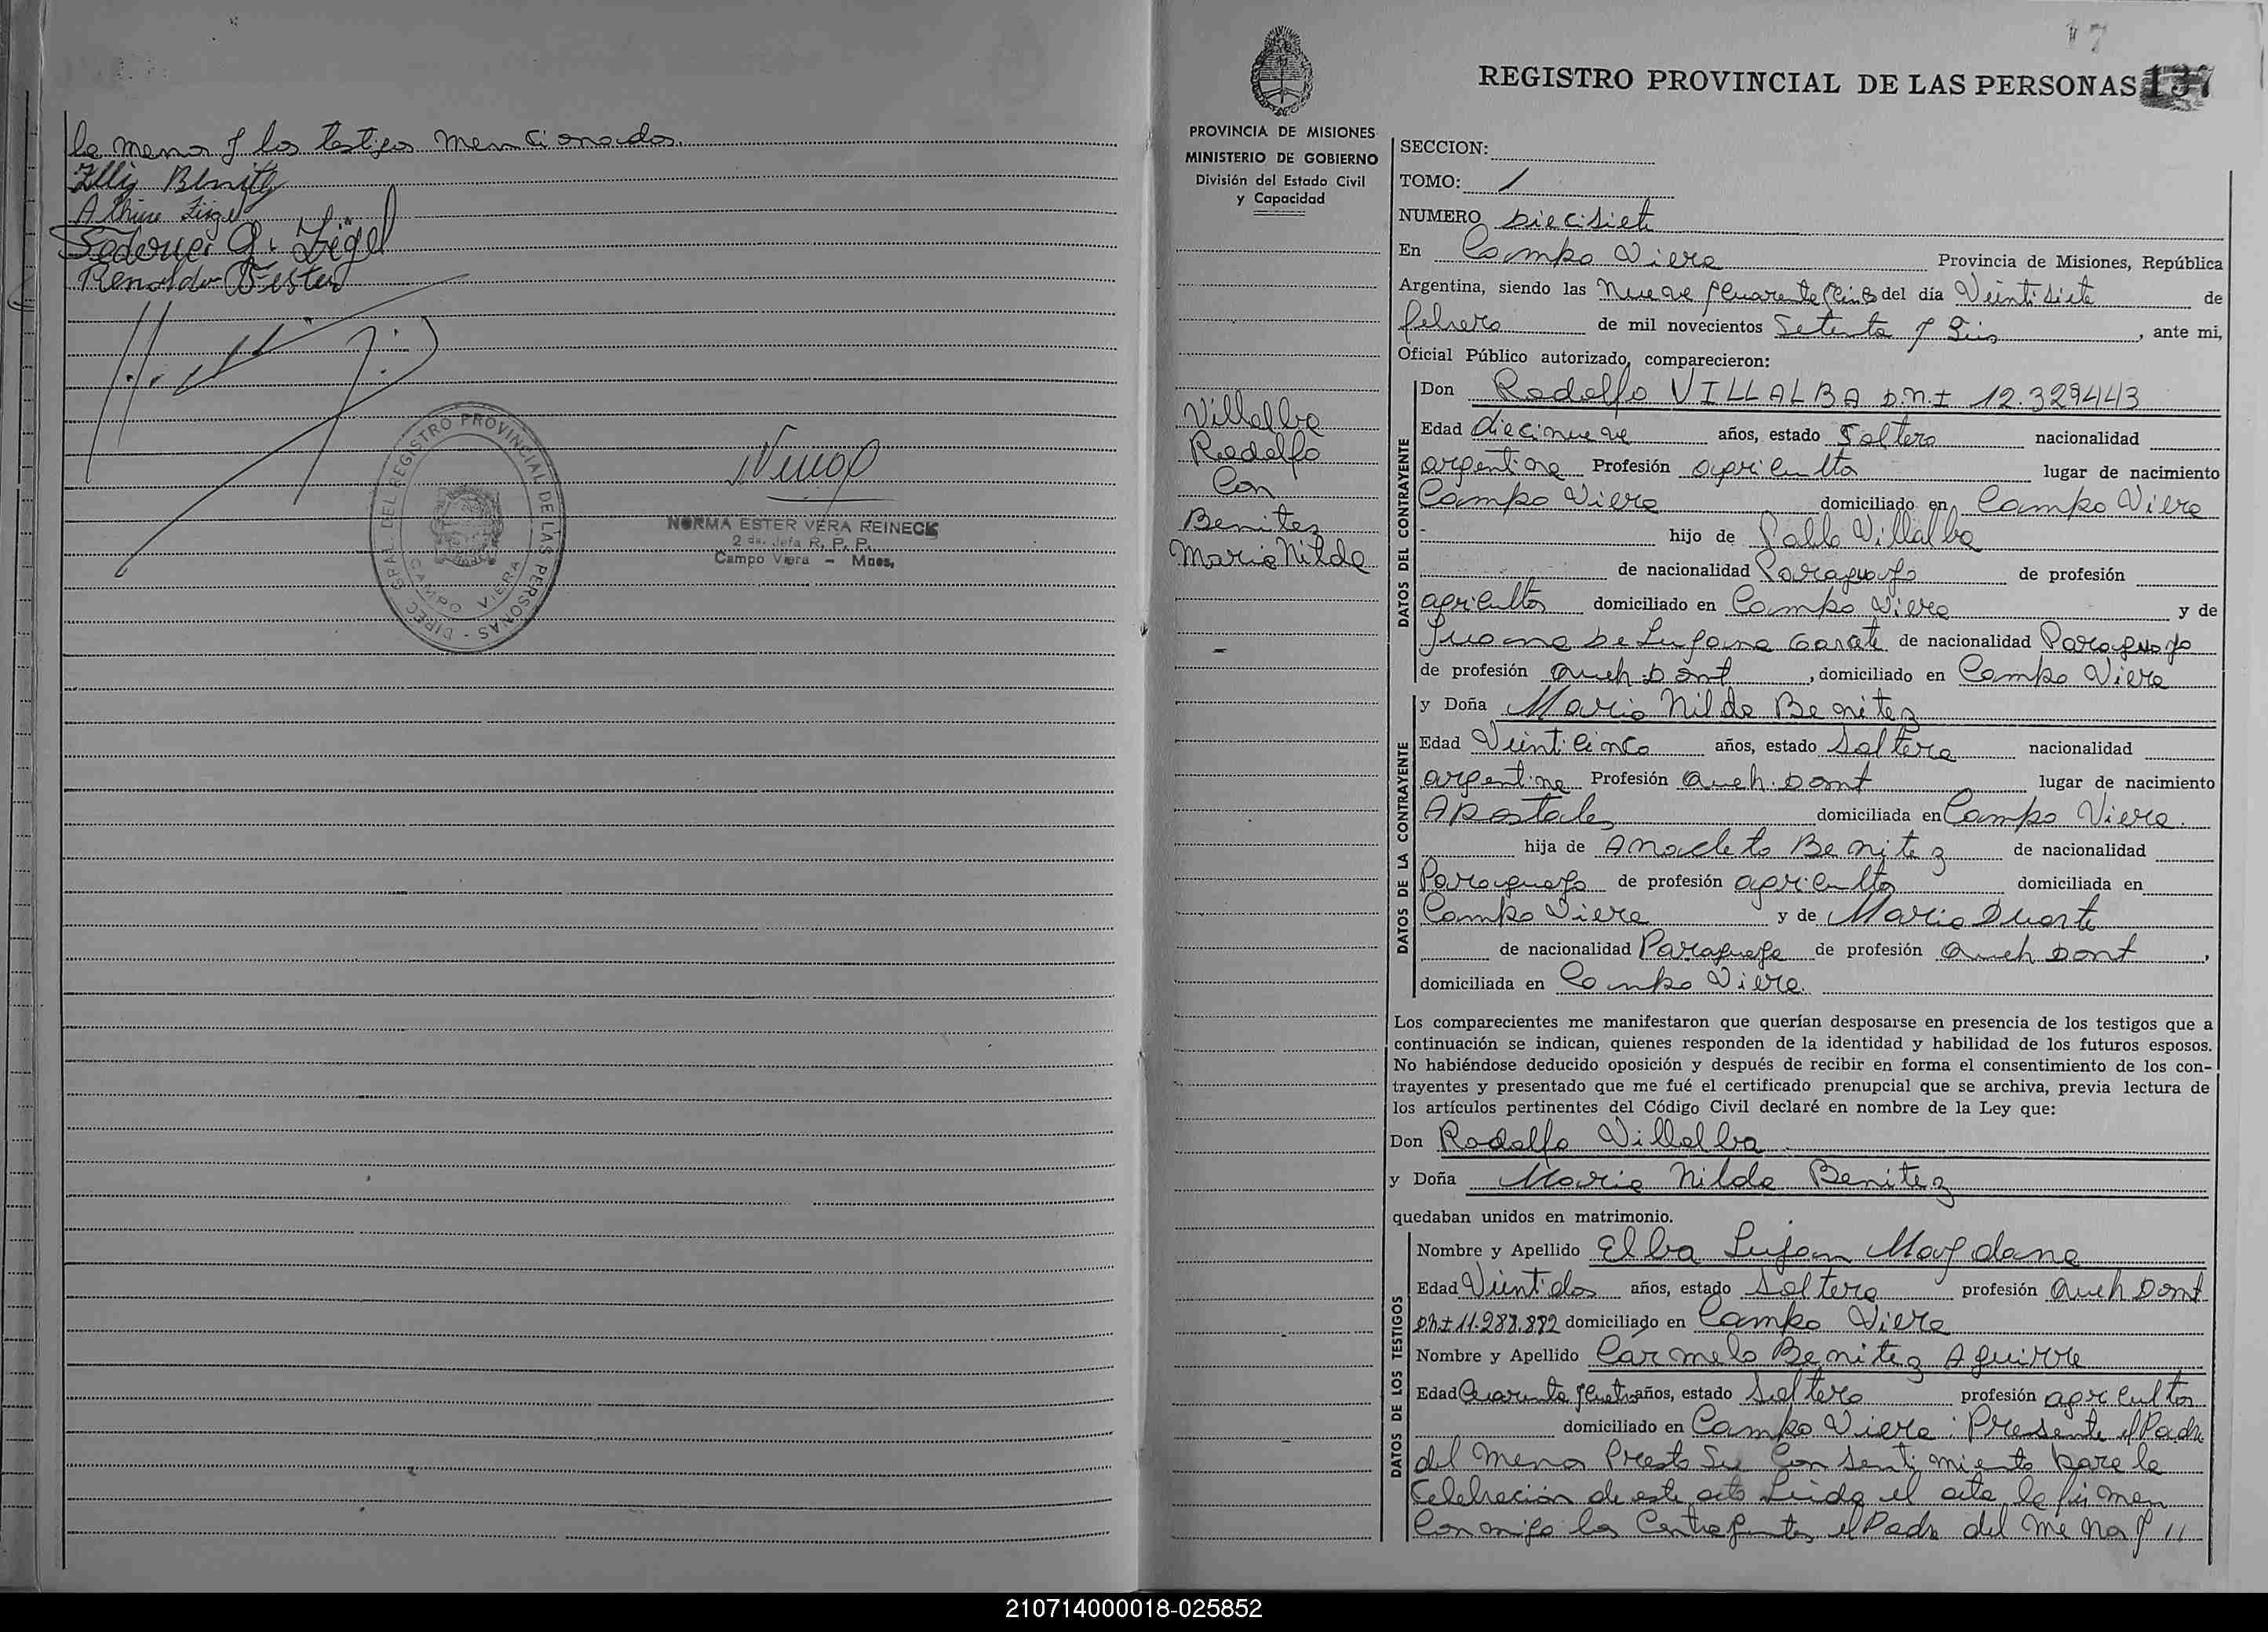 la menor y los testigos mencionados.
Elly Benitez
Federico G. Zigel
Renoldo Wester
DIREC. GRAL. DEL REGISTRO PROVINCIAL DE LAS PERSONAS -
CAMPO VIERA
NORMA ESTER VERA REINECK
2 da. Jefa R. P. P.
Campo Viera - Mnes.
17
REGISTRO PROVINCIAL DE LAS PERSONAS 137
PROVINCIA DE MISIONES
MINISTERIO DE GOBIERNO
División del Estado Civil
y Capacidad
Villalba
Rodolfo
Con
Benitez
Maria Nilda
SECCION:
TOMO: 1
NUMERO Diecisiete
En Campo Viera Provincia de Misiones, República
Argentina, siendo las nueve y cuarenta y cinco del día Veintisiete de
febrero de mil novecientos Setenta y Seis, ante mi,
Oficial Público autorizado, comparecieron:
DATOS DEL CONTRAYENTE
Don Rodolfo VILLALBA D.N.I 12.329443
Edad diecinueve años, estado Soltero nacionalidad
argentina Profesión agricultor lugar de nacimiento
Campo Viera domiciliado en Campo Viera
hijo de Pablo Villalba
de nacionalidad Paraguayo de profesión
agricultor domiciliado en Campo Viera y de
Juana De Lugana Garate de nacionalidad Paraguaya
de profesión Queh. Domt, domiciliado en Campo Viera
DATOS DE LA CONTRAYENTE
y Doña Maria Nilda Benitez
Edad Veinticinco años, estado Soltera nacionalidad
argentina Profesión Queh. Domt lugar de nacimiento
Apostoles domiciliada en Campo Viera.
hija de Anacleto Benitez de nacionalidad
Paraguayo de profesión agricultor domiciliada en
Campo Viera y de Maria Duarte
de nacionalidad Paraguaya de profesión Queh Domt,
domiciliada en Campo Viera.
Los comparecientes me manifestaron que querían desposarse en presencia de los testigos que a
continuación se indican, quienes responden de la identidad y habilidad de los futuros esposos.
No habiéndose deducido oposición y después de recibir en forma el consentimiento de los con-
trayentes y presentado que me fué el certificado prenupcial que se archiva, previa lectura de
los artículos pertinentes del Código Civil declaré en nombre de la Ley que:
Don Rodolfo Villalba
y Doña Maria Nilda Benitez
quedaban unidos en matrimonio.
DATOS DE LOS TESTIGOS
Nombre y Apellido Elba Lujan Maydana
Edad Veintidos años, estado Soltera profesión Queh Domt
DNI 11.288.882 domiciliado en Campo Viera
Nombre y Apellido Carmelo Benitez Aguirre
Edad Cuarenta y cuatro años, estado Soltero profesión agricultor
domiciliado en Campo Viera: Presente el Padre
del menor Presto Su Consentimiento para la
Celebración de este acto Leida el acta la firman
Conmigo los Contrayentes el Padre del menor y //
210714000018-025852